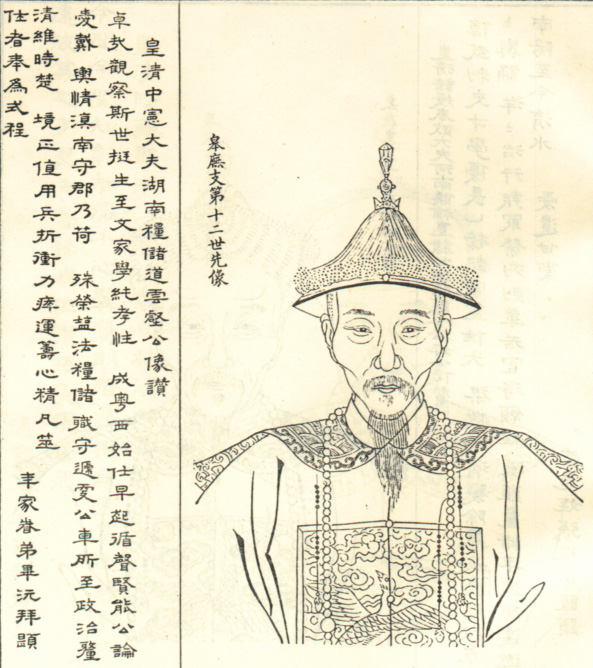 皋廡支第十二世先像
皇清中憲大夫湖南糧儲道雲壑公像讚
卓哉觀察斯世挺生至文家學純孝性 成粵西始仕早起循聲賢能公論
愛戴 輿情滇南守郡乃荷 殊榮益法糧儲職守遞更公車所至政治釐
清維時楚 境正值用兵折衝力瘁運籌心精凡茲
仕者奉為式程
年家眷弟畢沅拜題